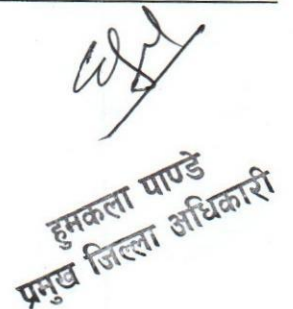 हुमकला पाण्डे
प्रमुख जिल्ला अधिकारी